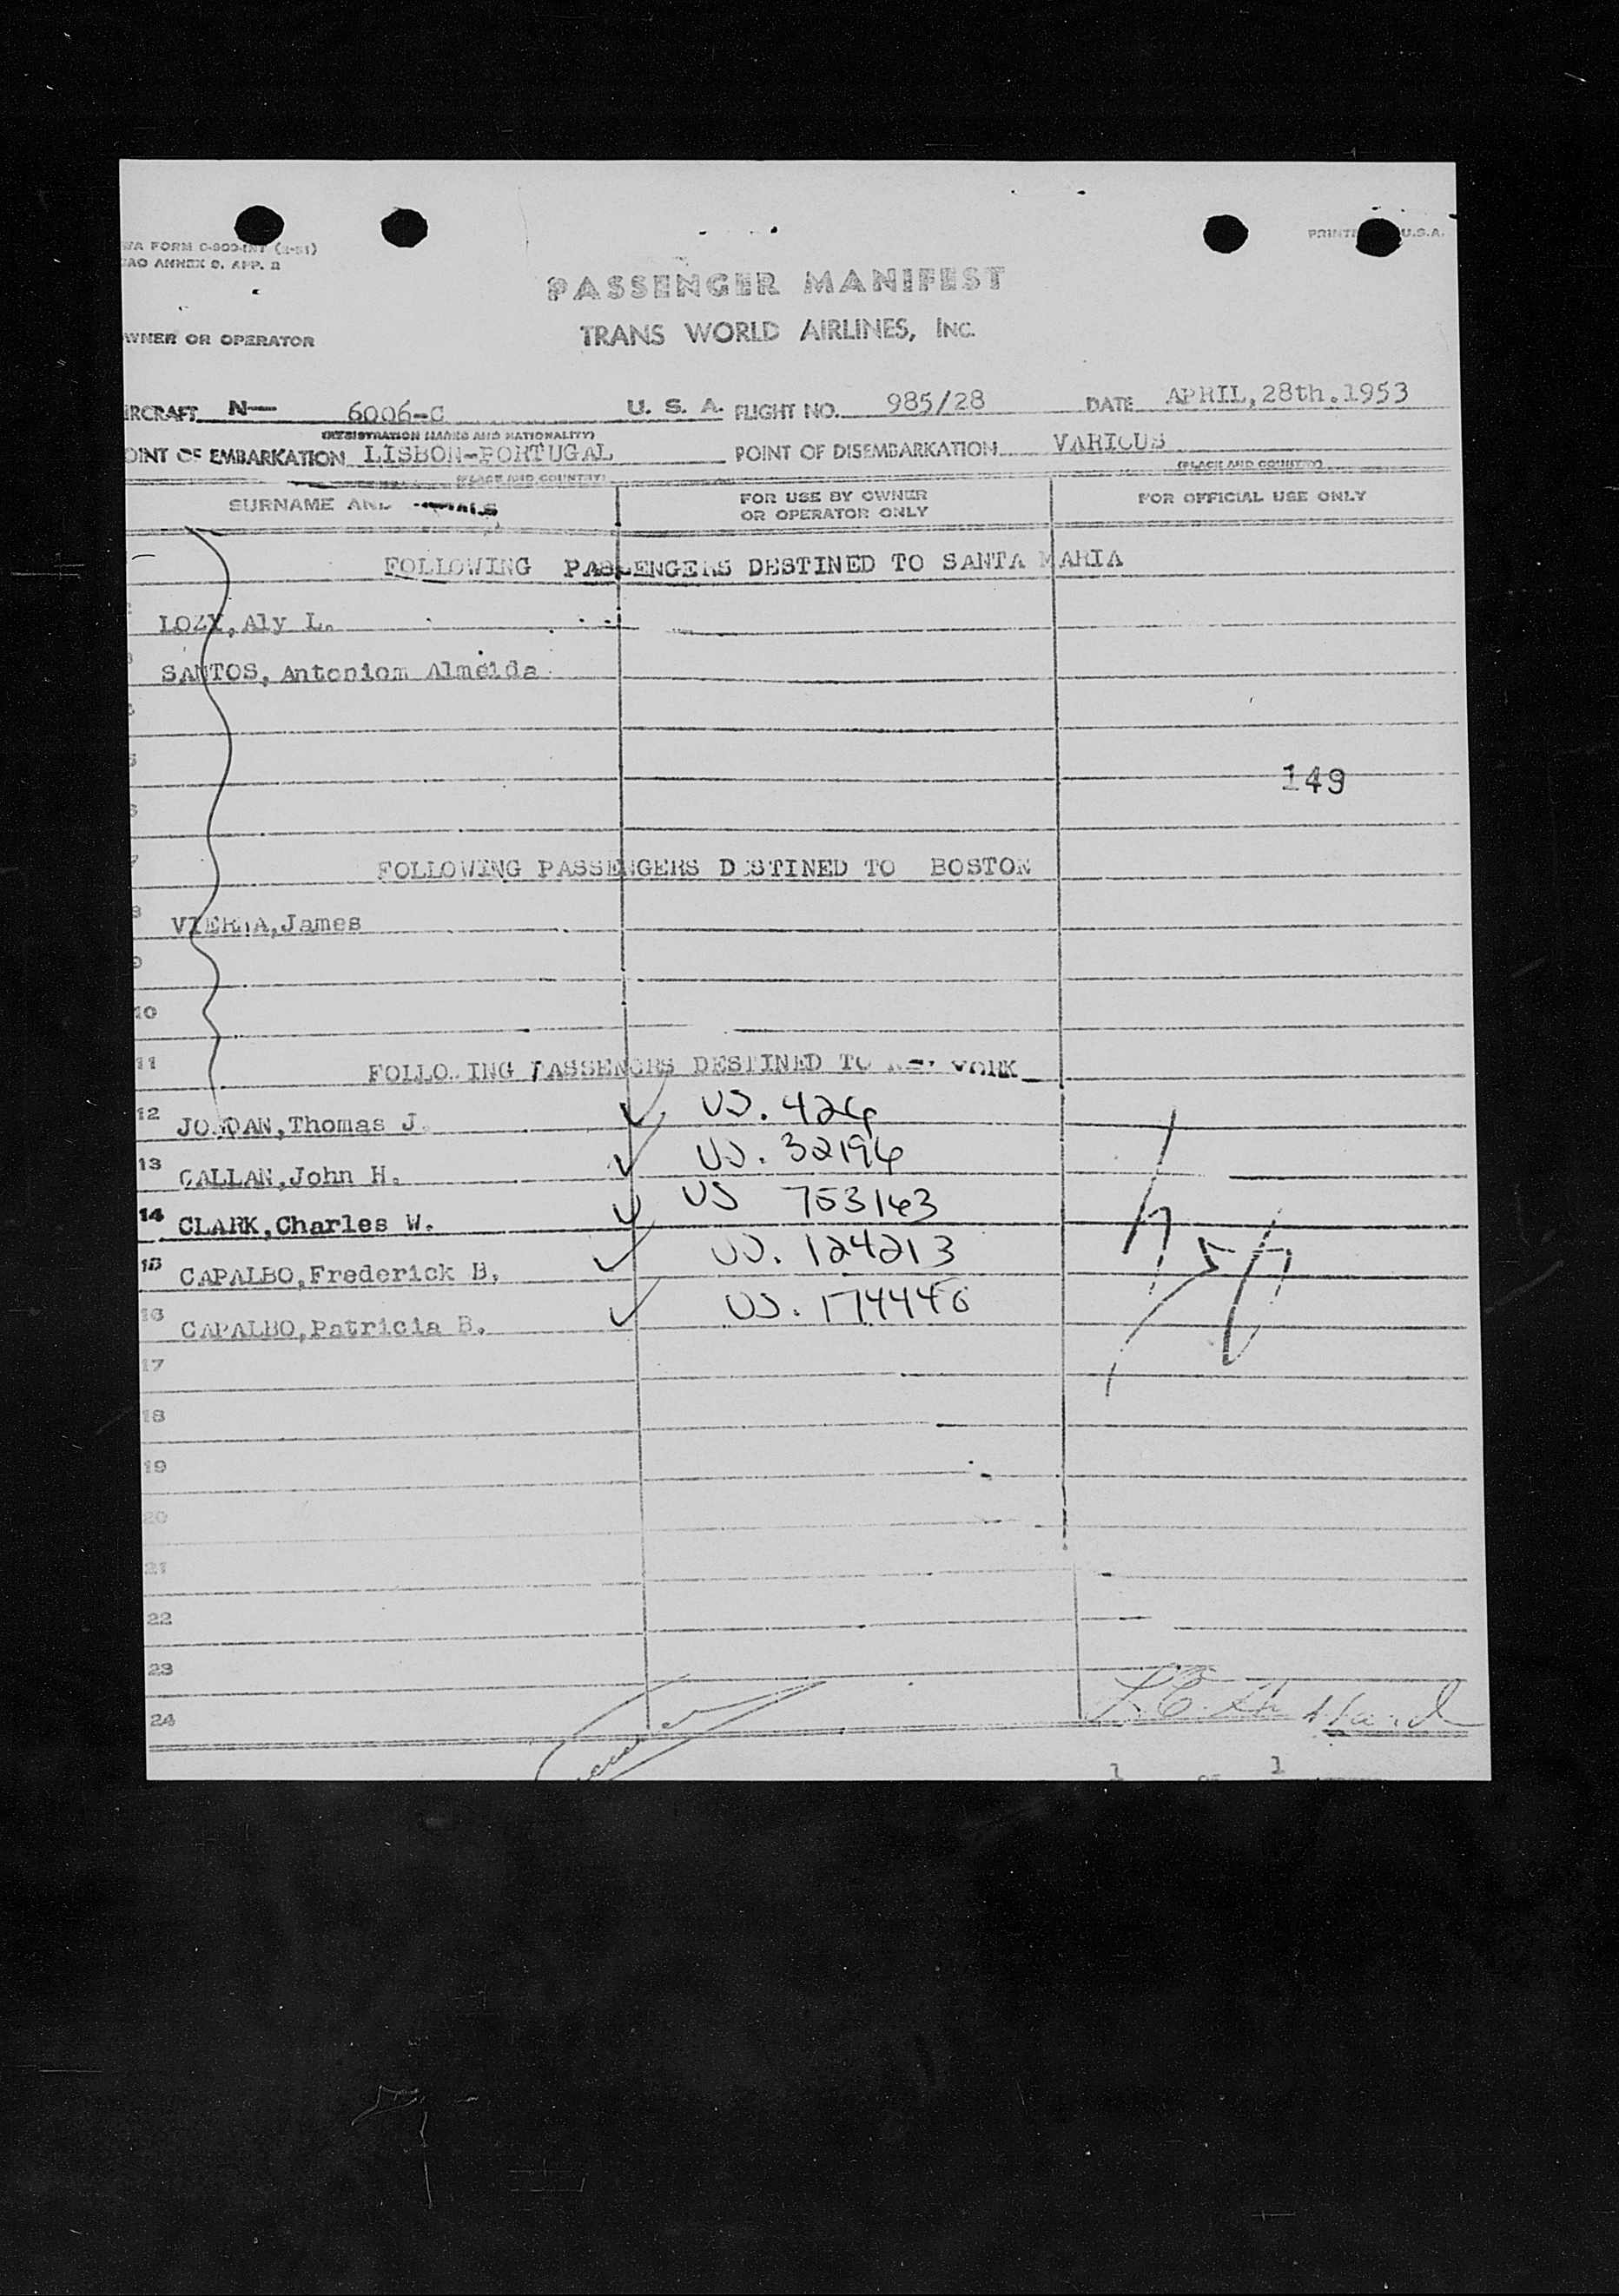 WA FORM C-800-INT (2-51)
PRINTED U.S.A.
AO ANNEX 9. APP. 2
PASSENGER MANIFEST
WNER OR OPERATOR
TRANS WORLD AIRLINES, INC.
IRCRAFT N— 6006-C U. S. A. FLIGHT NO. 985/28 DATE APRIL, 28th. 1953
(REGISTRATION MARKS AND NATIONALITY)
OINT OF EMBARKATION LISBON-PORTUGAL POINT OF DISEMBARKATION VARIOUS
(PLACE AND COUNTRY) (PLACE AND COUNTRY)
SURNAME AND INITIALS FOR USE BY OWNER OR OPERATOR ONLY FOR OFFICIAL USE ONLY
FOLLOWING PASSENGERS DESTINED TO SANTA MARIA
LOZY, Aly L.
SANTOS, Antoniom Almeida
5
149
6
7 FOLLOWING PASSENGERS D STINED TO BOSTON
8 James
9
10
11 FOLLO ING PASSENGRS DESTINED TO NEW YORK
12 JORDAN, Thomas J. US. 424
13 CALLAN, John H. US. 32194
14 CLARK, Charles W. US 753163
15 CAPALBO, Frederick B. US. 124213
16 CAPALBO, Patricia B. US. 174446
17
18
19
20
21
22
23
24
1 OF 1